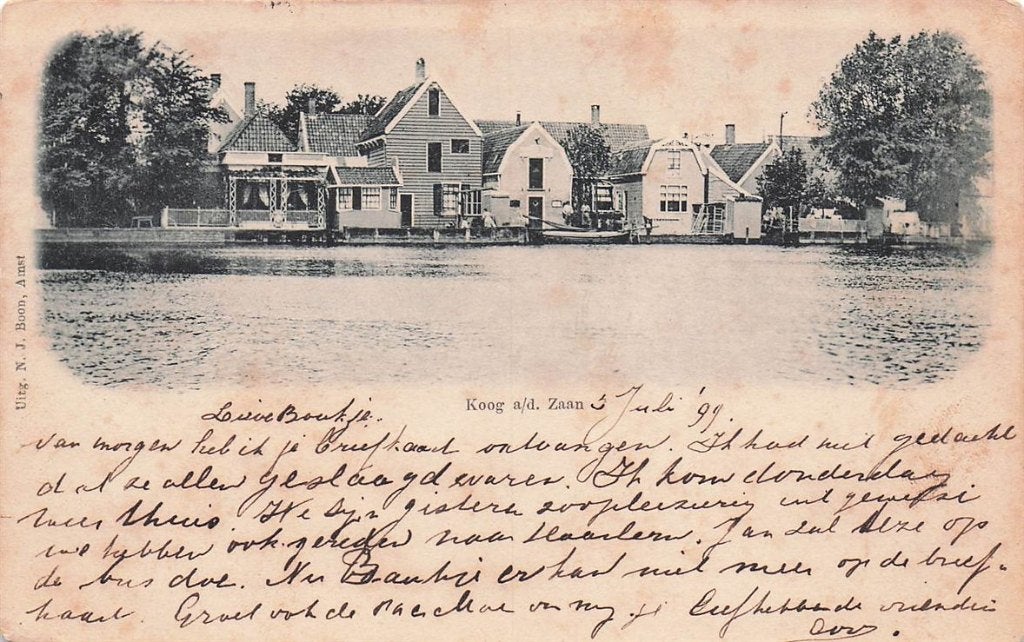 Uitg. N. J. Boon, Amst
Koog a/d. Zaan 5 Juli '99.
Lieve Boukje.
van morgen heb ik je briefkaart ontvangen. Ik had niet gedacht
dat ze allen geslaagd waren. Ik kom donderdag
weer thuis. We zijn gisteren zoo pleizierig uit geweest
we hebben ook gereden naar Haarlem. Jan zal deze op
de bus doe. Nu Boukje er kan niet meer op de brief-
kaart. Groet ook de van my. je liefhebbende vriendin